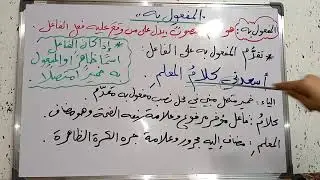 المفعول به.
المفعول به: هو اسم منصوب يدل على من وقع عليه فعل الفاعل
* تقدم المفعول به على الفاعل:
* إذا كان الفاعل
اسمًا ظاهرًا والمفعول
به ضميرًا متصلًا
أسعدني كلامُ المعلمِ.
الياء: ضمير متصل مبني في محل نصب مفعول به مقدم
كلامُ: فاعل مؤخر مرفوع وعلامة رفعه الضمة وهو مضاف
المعلمِ: مضاف إليه مجرور وعلامة جره الكسرة الظاهرة